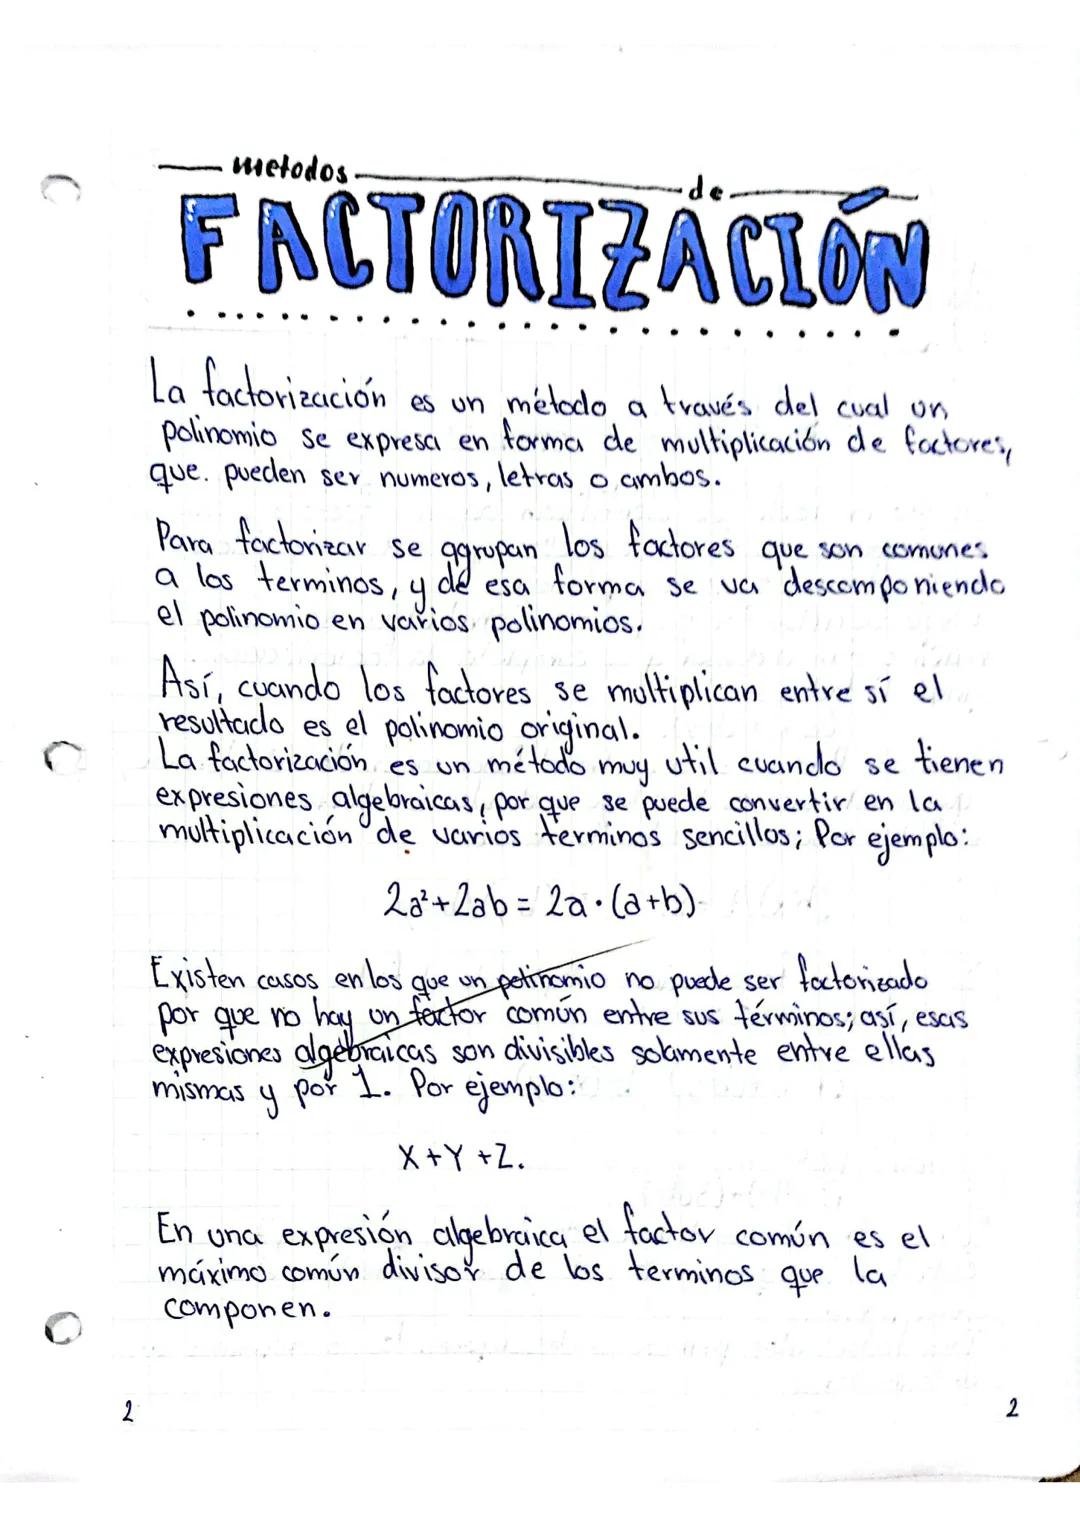 metodos de
FACTORIZACIÓN
La factorización es un método a través del cual un
polinomio se expresa en forma de multiplicación de factores,
que. pueden ser numeros, letras o ambos.
Para factorizar se agrupan los factores que son comunes
a los terminos, y de esa forma se va descomponiendo
el polinomio en varios polinomios.
Así, cuando los factores se multiplican entre sí el
resultado es el polinomio original.
La factorización es un método muy util cuando se tienen
expresiones algebraicas, por que se puede convertir en la
multiplicación de varios terminos sencillos; Por ejemplo:
2a²+2ab = 2a·(a+b)
Existen casos en los que un polinomio no puede ser factorizado
por que no hay un factor común entre sus términos; así, esas
expresiones algebraicas son divisibles solamente entre ellas
mismas y por 1. Por ejemplo:
X+Y+Z.
En una expresión algebraica el factor común es el
máximo común divisor de los terminos que la
componen.
2 2